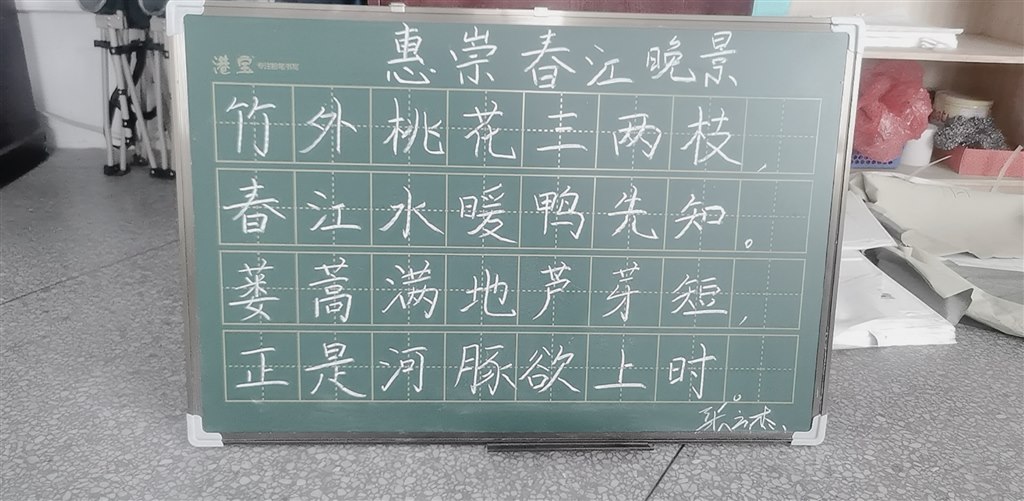 惠崇春江晚景
竹外桃花三两枝,
春江水暖鸭先知。
蒌蒿满地芦芽短,
正是河豚欲上时。